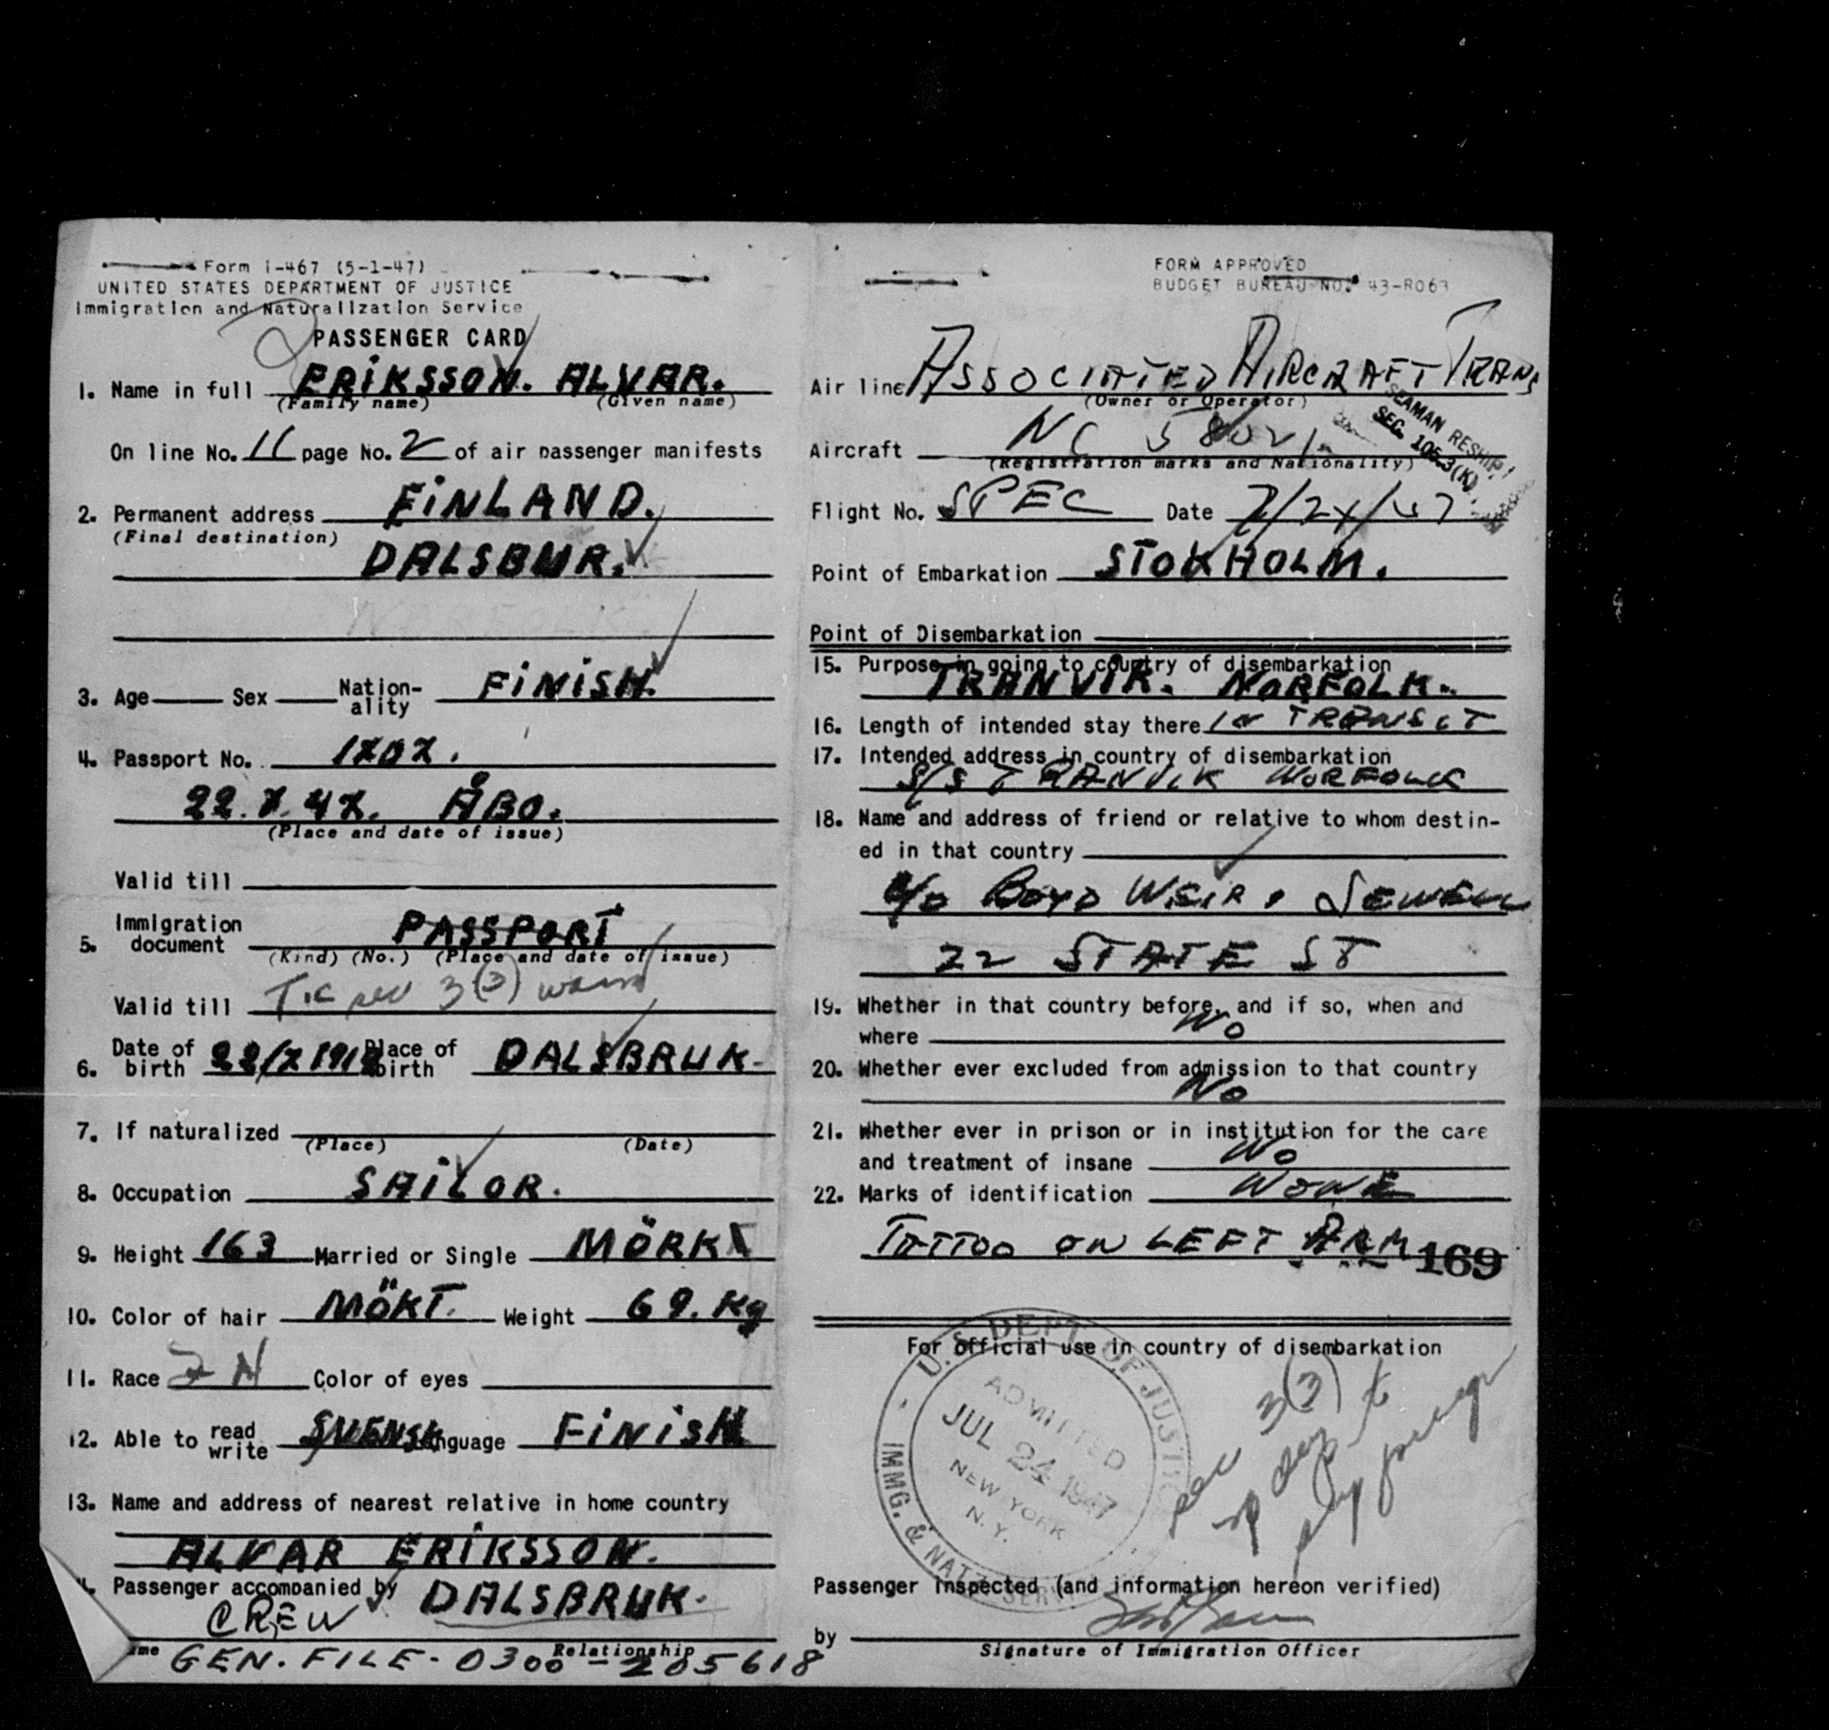 Form I-467 (5-1-47)
UNITED STATES DEPARTMENT OF JUSTICE
Immigration and Naturalization Service
PASSENGER CARD
1. Name in full ERIKSSON. ALVAR.
(Family name) (Given name)
On line No. 11 page No. 2 of air passenger manifests
2. Permanent address FINLAND.
(Final destination)
DALSBUR.
3. Age Sex Nation-ality FINISH.
4. Passport No.
ÅBO.
(Place and date of issue)
Valid till
5. Immigration document PASSPORT
(Kind) (No.) (Place and date of issue)
Valid till 3(3)
6. Date of birth Place of birth DALSBRUK.
7. If naturalized
(Place) (Date)
8. Occupation SAILOR.
9. Height 163 Married or Single MÖRKT
10. Color of hair MÖKT. Weight 69. Kg
11. Race Color of eyes
12. Able to read write SVENSK Language FINISH
13. Name and address of nearest relative in home country
ALVAR ERIKSSON.
Passenger accompanied by DALSBRUK.
CREW
Relationship
GEN. FILE - 0300 - 205618
FORM APPROVED
BUDGET BUREAU NO. 43-R063
Air line ASSOCIATED AIRCRAFT TRANS
(Owner or Operator)
SEAMAN RESHIP.
SEC. 105.3(K)
Aircraft NC
(Registration marks and Nationality)
Flight No. SPEC Date 7/24/47
Point of Embarkation STOKHOLM.
Point of Disembarkation
15. Purpose in going to country of disembarkation
TRANVIK. NORFOLK.
16. Length of intended stay there IN TRANSIT
17. Intended address in country of disembarkation
S/S TRANVIK NORFOLK
18. Name and address of friend or relative to whom destin-
ed in that country
c/o BOYD WEIR & SEWELL
22 STATE ST
19. Whether in that country before, and if so, when and
where NO
20. Whether ever excluded from admission to that country
NO
21. Whether ever in prison or in institution for the care
and treatment of insane NO
22. Marks of identification NONE
TATTOO ON LEFT ARM 169
For official use in country of disembarkation
U.S. DEPT. OF JUSTICE
ADMITTED
JUL 24 1947
NEW YORK
N.Y.
IMMG. & NATZ. SERV.
sec 3(3)
Passenger Inspected (and information hereon verified)
by
Signature of Immigration Officer